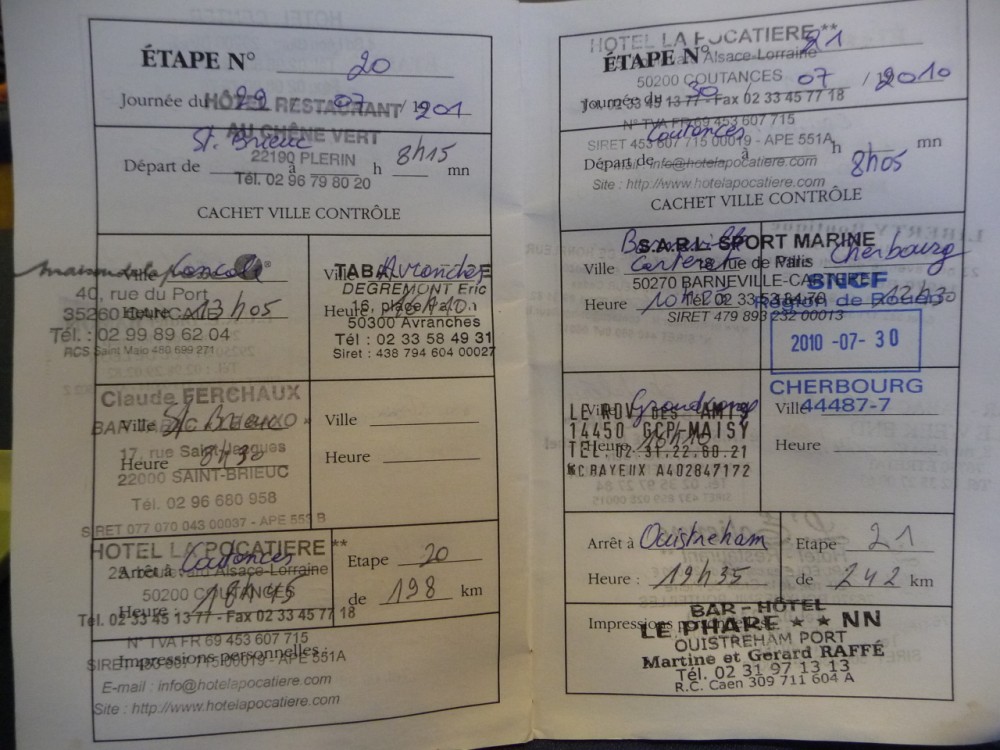 ÉTAPE N° 20
Journée du 29 07 / 201
HÔTEL RESTAURANT
AU CHÊNE VERT
22190 PLERIN
Tél. 02 96 79 80 20
St. Brieuc
Départ de à h 8h15 mn
CACHET VILLE CONTRÔLE
Ville Cancale
40, rue du Port
35260 CANCALE
Heure 13h05
Tél. : 02 99 89 62 04
RCS Saint Malo 480 699 271
Ville Avranches
TABA
DEGREMONT Eric
16, place
Heure
50300 Avranches
Tél : 02 33 58 49 31
Siret : 438 794 604 00027
Claude FERCHAUX
Ville St Brieuc
17, rue Saint-Jacques
Heure 8h30
22000 SAINT-BRIEUC
Tél. 02 96 680 958
SIRET 077 070 043 00037 - APE 553 B
Ville
Heure
HOTEL LA POCATIERE **
Arrêt à Coutances
Boulevard Alsace-Lorraine
50200 COUTANCES
Heure : 18h45
Tél. 02 33 45 13 77 - Fax 02 33 45 77 18
Etape 20
de 198 km
N° TVA FR 69 453 607 715
Impressions personnelles :
SIRET 453 607 715 00019 - APE 551A
E-mail : info@hotelapocatiere.com
Site : http://www.hotelapocatiere.com
HOTEL LA POCATIERE **
ÉTAPE N° 21
Alsace-Lorraine
50200 COUTANCES
Journée du 30 07 / 2010
02 33 45 13 77 - Fax 02 33 45 77 18
N° TVA FR 69 453 607 715
Coutances
SIRET 453 607 715 00019 - APE 551A
Départ de à h 8h05 mn
info@hotelapocatiere.com
Site : http://www.hotelapocatiere.com
CACHET VILLE CONTRÔLE
S.A.R.L. SPORT MARINE
Ville Barneville Carteret
50270 BARNEVILLE-CARTERET
Heure 10h20
Tél. 02 33 53 84 70
SIRET 479 893 232 00013
Ville Cherbourg
SNCF
Région de Rouen
12h30
2010 -07- 30
CHERBOURG
44487-7
LE RDV DES AMIS
Ville Grandcamp
14450 GCP-MAISY
Heure 16h10
TEL. 02.31.22.60.21
RC BAYEUX A402847172
Ville
Heure
Arrêt à Ouistreham
Etape 21
Heure : 19h35
de 242 km
Impressions personnelles
BAR - HÔTEL
LE PHARE ★ ★ NN
OUISTREHAM PORT
Martine et Gérard RAFFÉ
Tél. 02 31 97 13 13
R.C. Caen 309 711 604 A